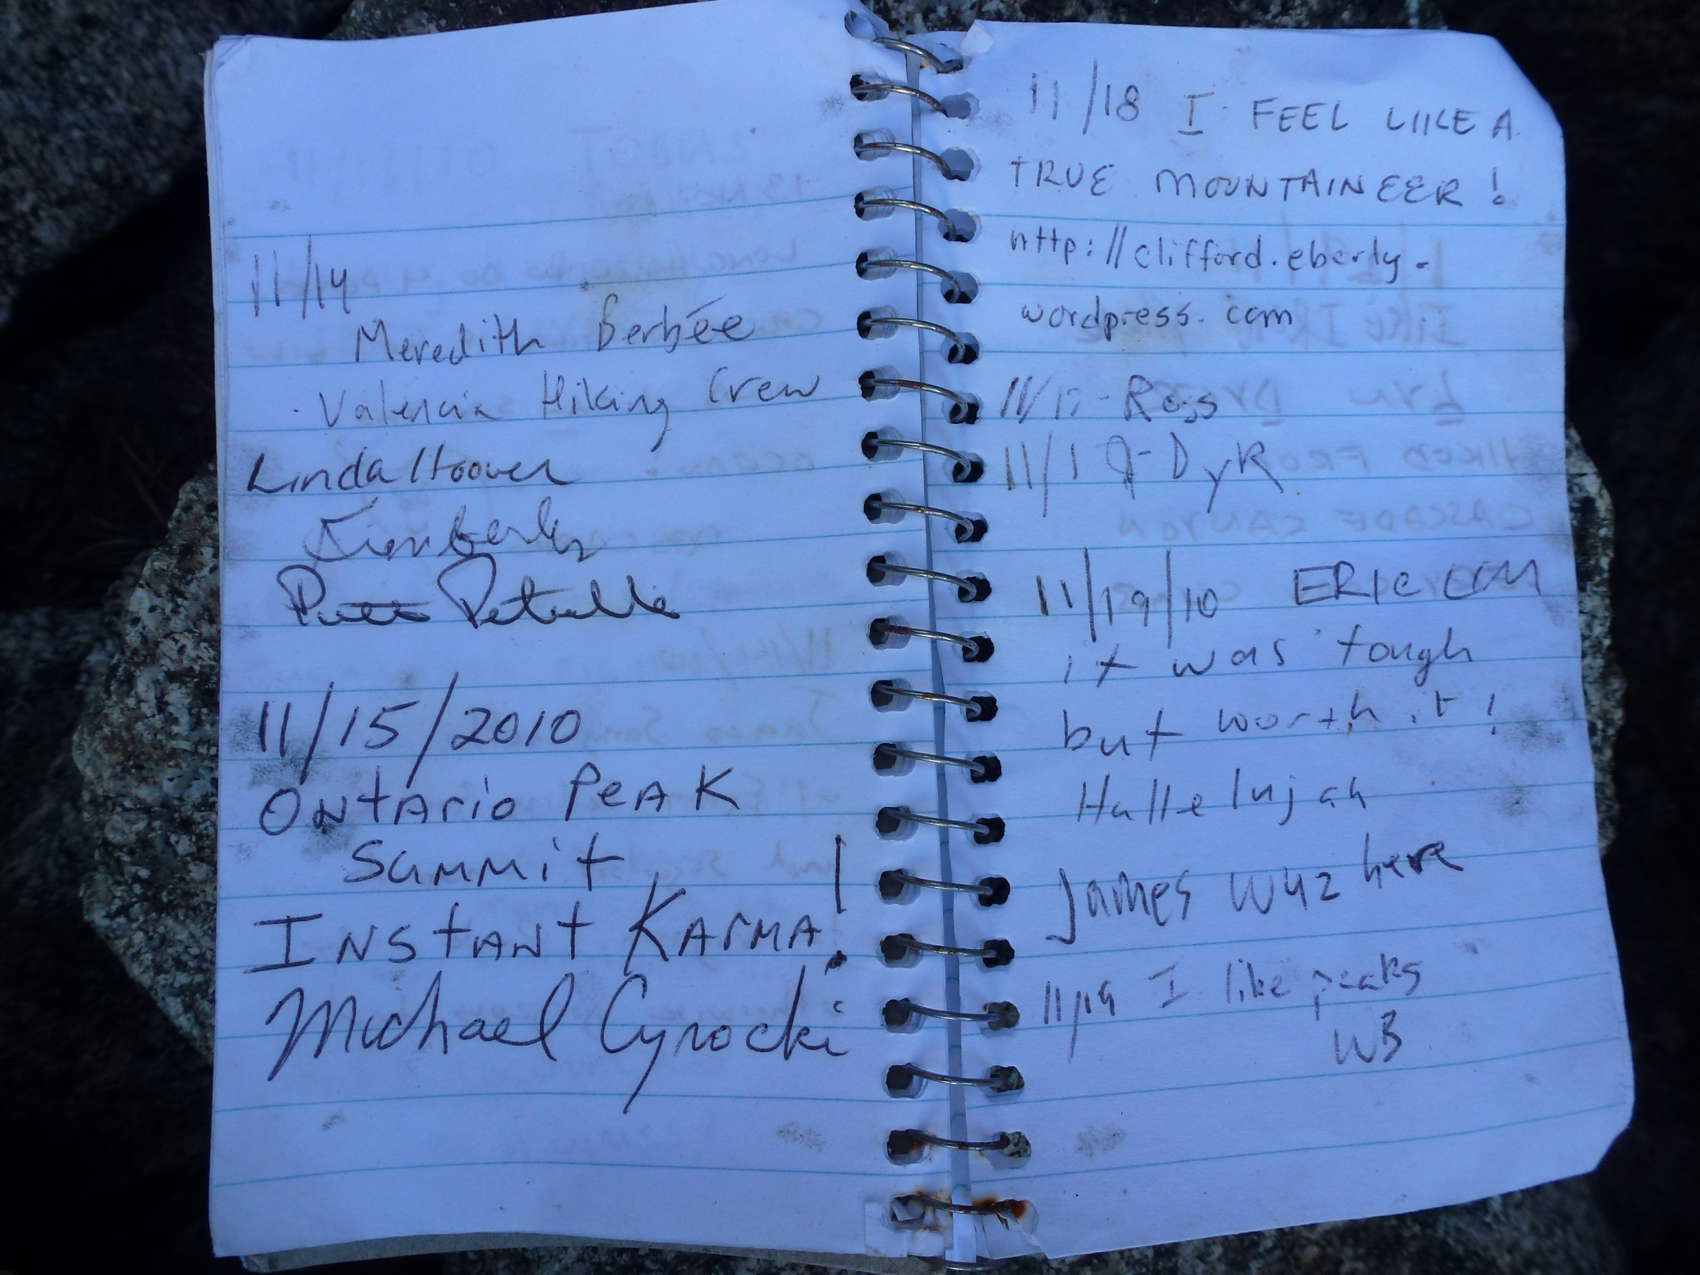 11/14
Meredith Berbée
Valencia Hiking Crew
Linda Hoover
Kimberly
11/15/2010
Ontario Peak
Summit
Instant Karma!
Michael Cyrocki
11/18 I FEEL LIKE A
TRUE MOUNTAINEER!
http://clifford.eberly.
wordpress.com
Ross
11/1 J-DyR
11/19/10 ERIC
it was tough
but worth it!
Hallelujah
James wuz here
11/19 I like peaks
WB